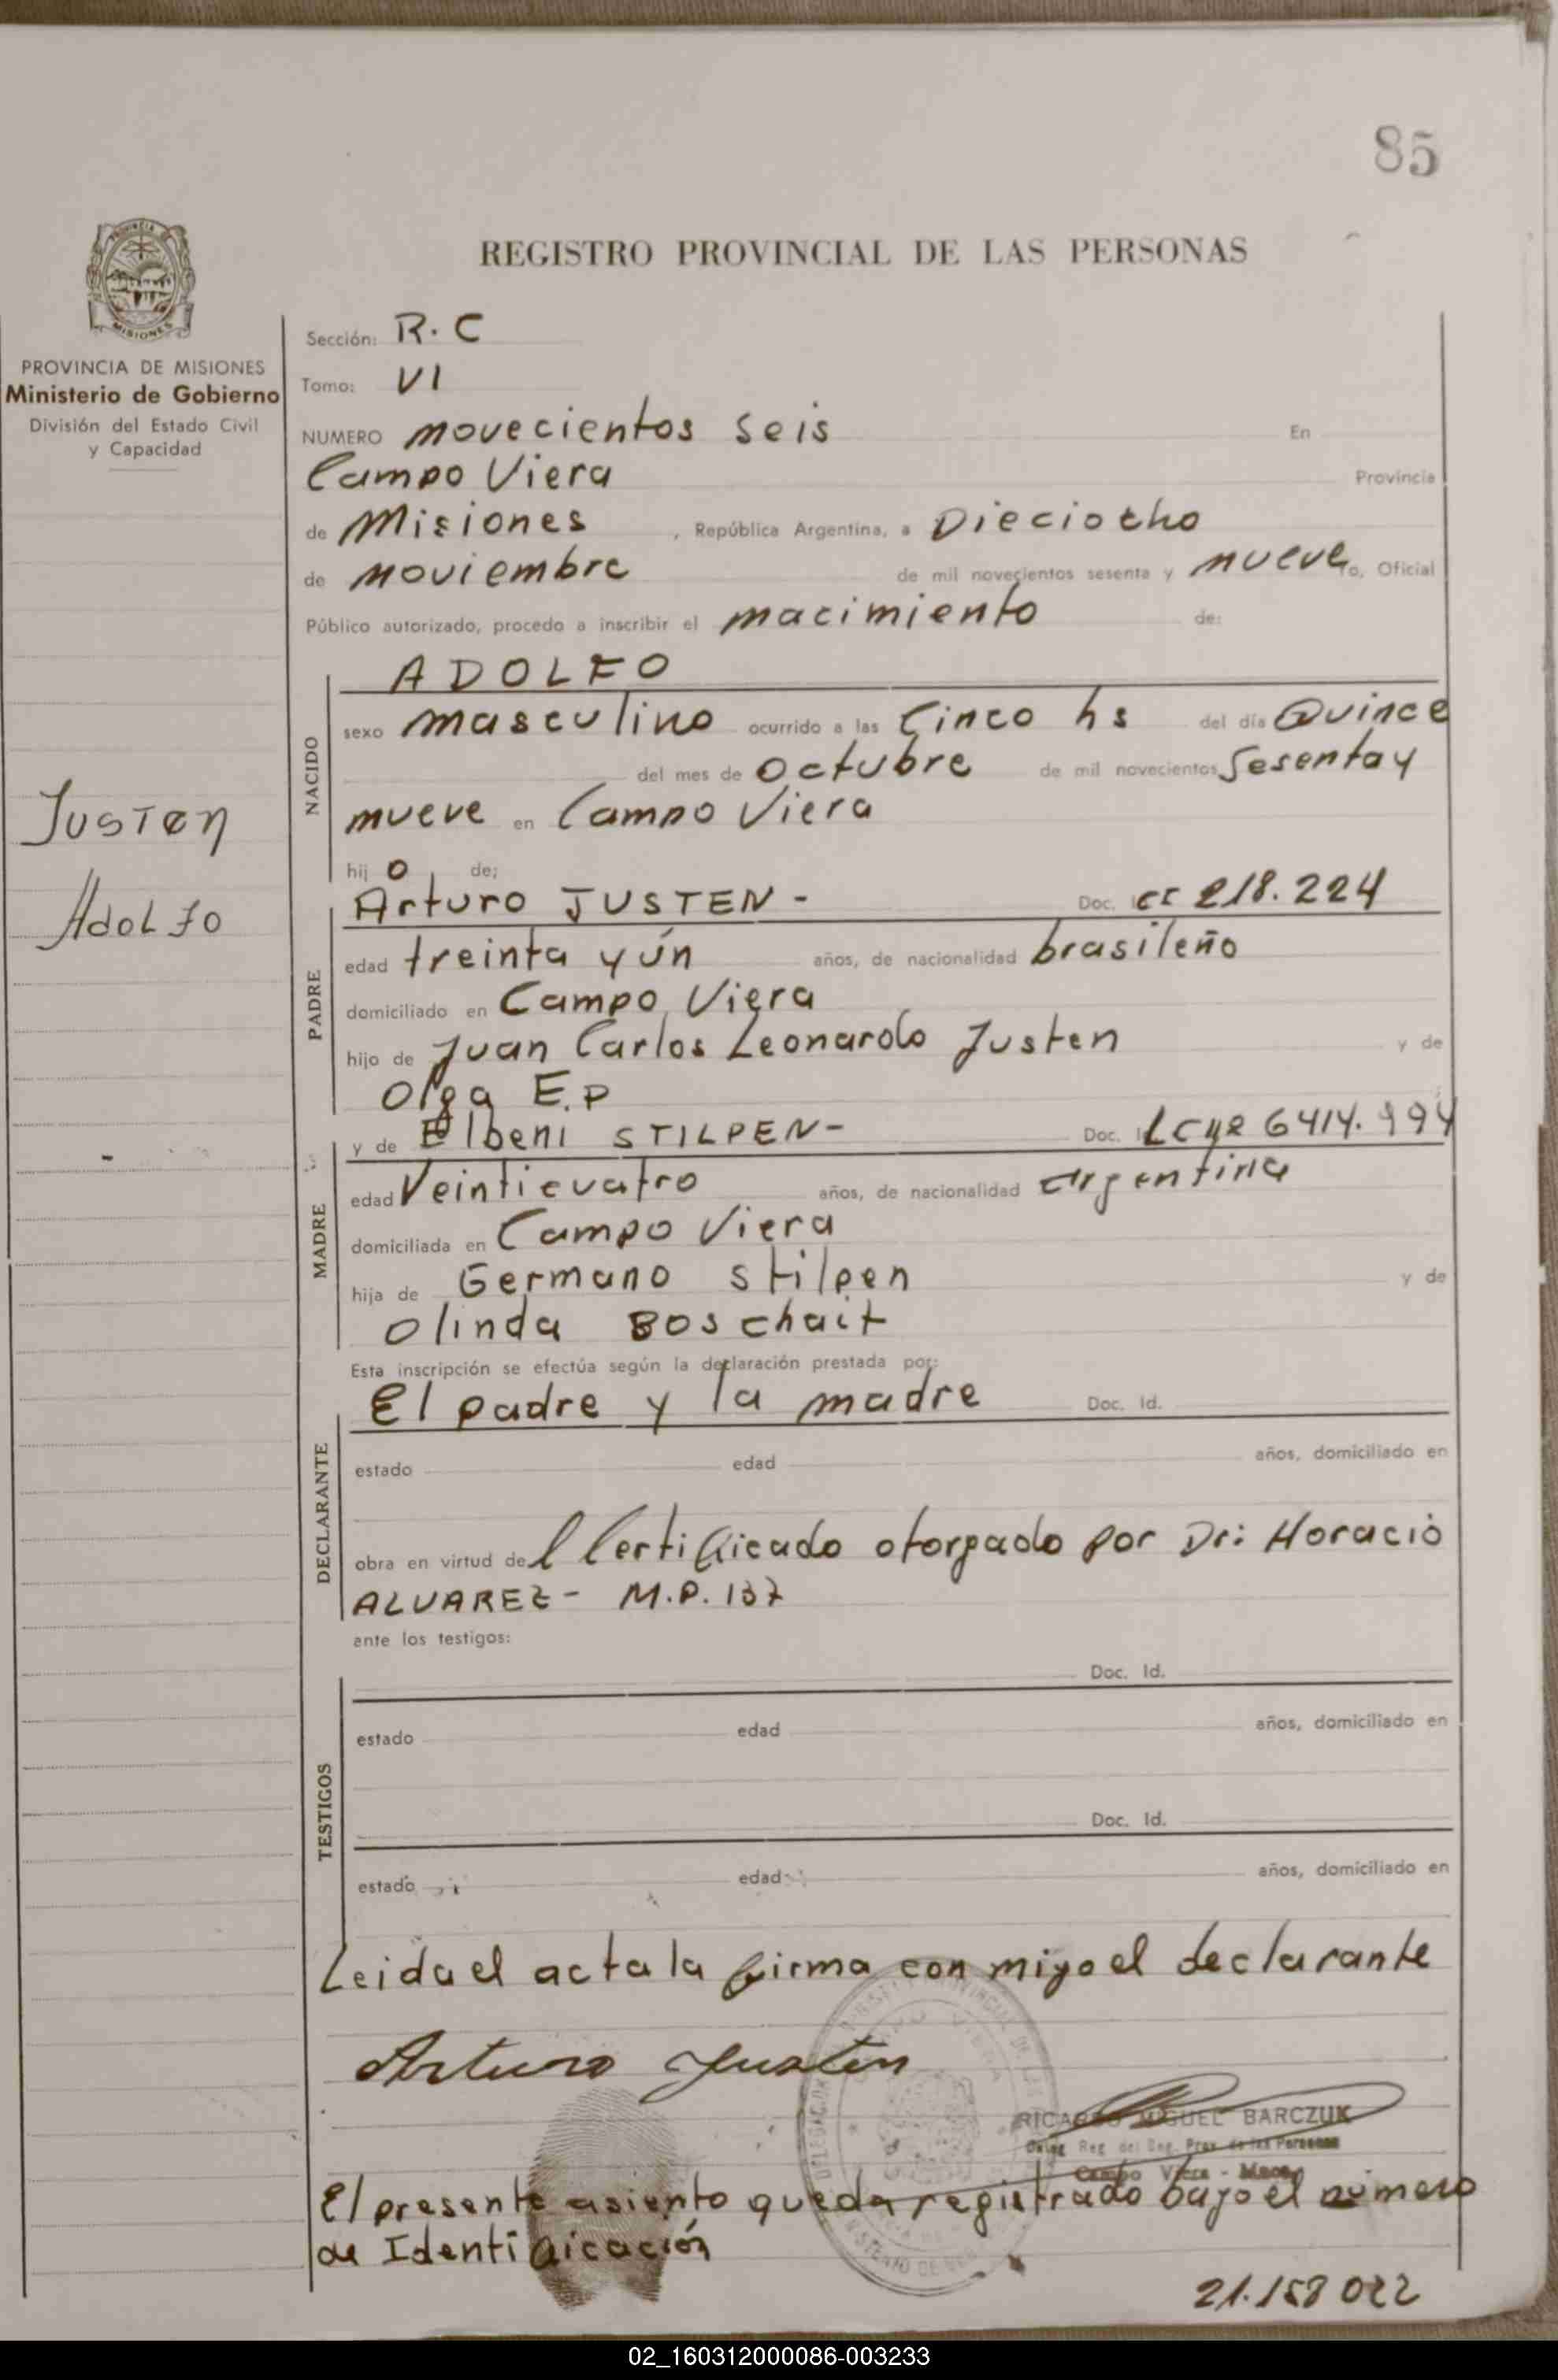 85
REGISTRO PROVINCIAL DE LAS PERSONAS
PROVINCIA DE MISIONES
Ministerio de Gobierno
División del Estado Civil
y Capacidad
Justen
Adolfo
Sección: R. C
Tomo: VI
NUMERO novecientos seis En
Campo Viera Provincia
de Misiones , República Argentina, a Dieciocho
de noviembre de mil novecientos sesenta y nueve, Oficial
Público autorizado, procedo a inscribir el nacimiento de:
ADOLFO
NACIDO
sexo masculino ocurrido a las Cinco hs del día Quince
del mes de Octubre de mil novecientos Sesenta y
nueve en Campo Viera
hij o de:
PADRE
Arturo JUSTEN - Doc. 218.224
edad treinta y ún años, de nacionalidad brasileño
domiciliado en Campo Viera
hijo de Juan Carlos Leonardo Justen y de
Olga E.P
MADRE
y de Elbeni STILPEN- Doc. LC 6414.994
edad Veinticuatro años, de nacionalidad argentina
domiciliada en Campo Viera
hija de Germano Stilpen y de
Olinda Boschait
Esta inscripción se efectúa según la declaración prestada por:
DECLARANTE
El padre y la madre Doc. Id.
estado edad años, domiciliado en
obra en virtud de l Certificado otorgado por Dr: Horacio
ALVAREZ - M.P. 137
ante los testigos:
TESTIGOS
Doc. Id.
estado edad años, domiciliado en
Doc. Id.
estado edad años, domiciliado en
Leida el acta la firma con migo el declarante
Arturo Justen
RICARDO MIGUEL BARCZUK
Deleg Reg del Reg. Prov. de las Personas
Campo Viera - Mnes.
El presente asiento queda registrado bajo el número
de Identificación
21.158 022
02_160312000086-003233